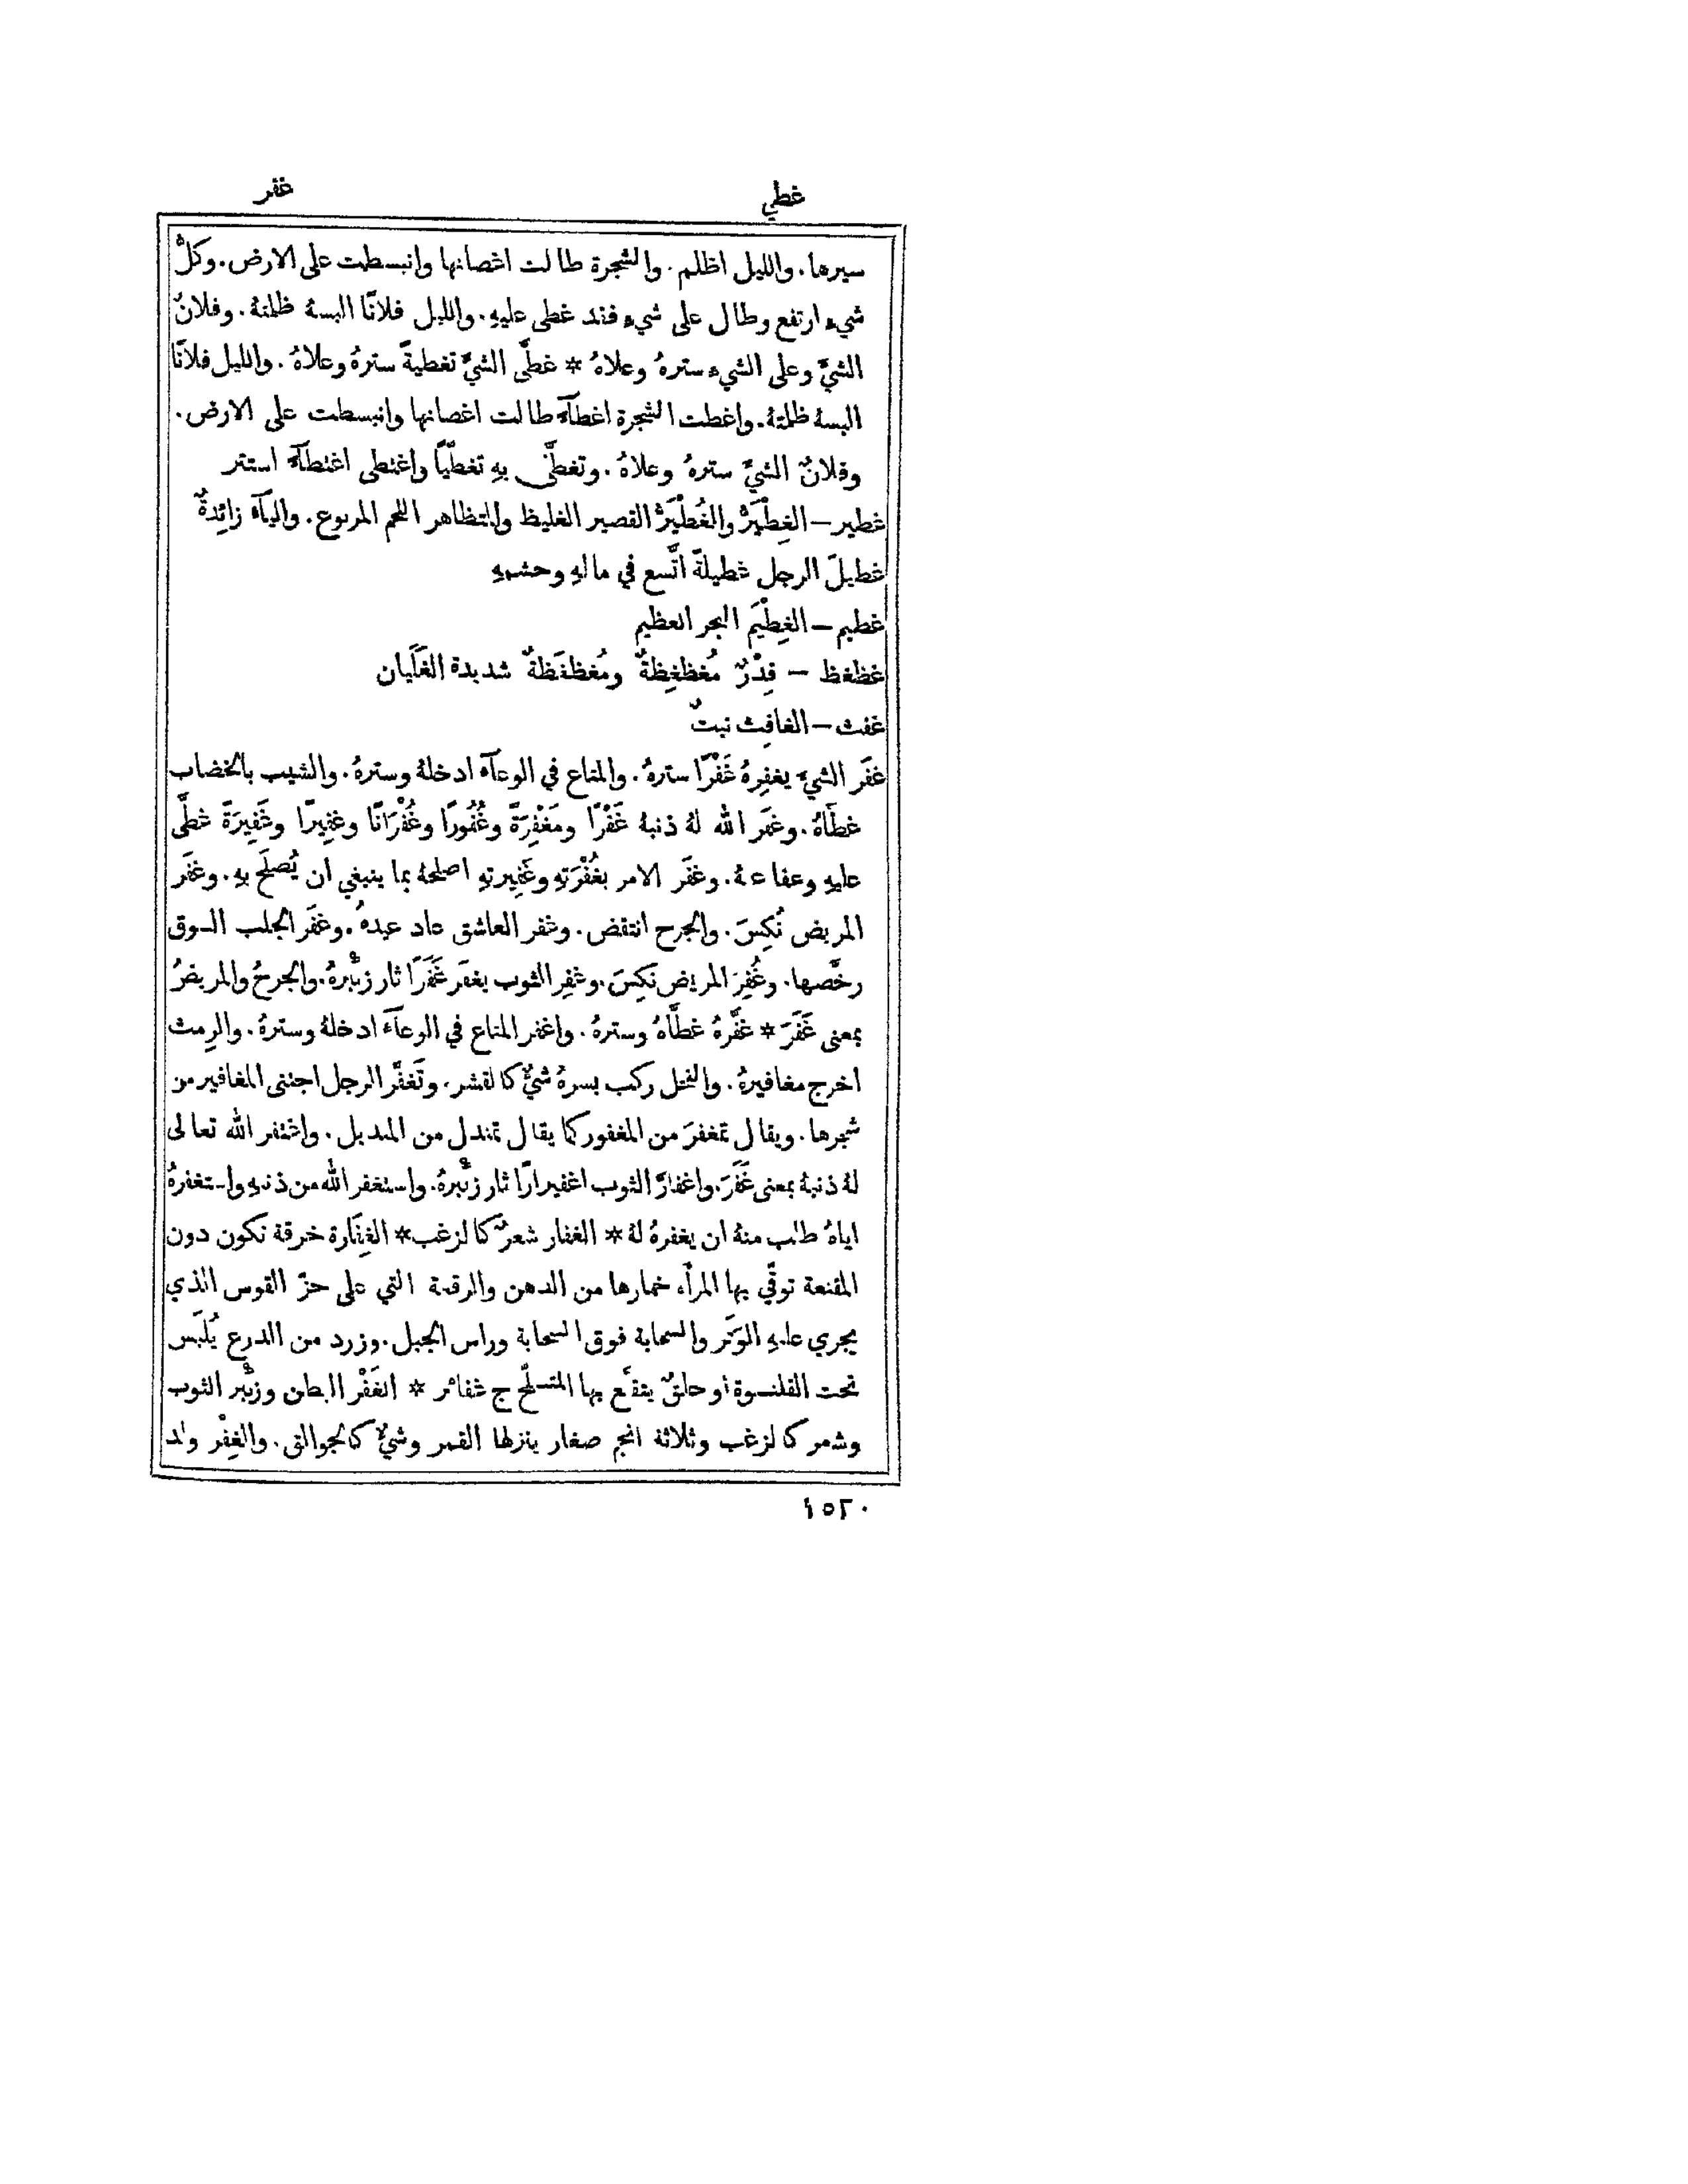 غطي
غفر
سيرها. والليل اظلم. والشجرة طالت اغصانها وانبسطت على الارض. وكلّ
شيءٍ ارتفع وطال على شيءٍ فقد غطى عليهِ. والليل فلانًا البسهُ ظلمتهُ. وفلانٌ
الشيَّ وعلى الشيء سترهُ وعلاهُ * غطَّى الشيَّ تغطيةً سترهُ وعلاهُ. والليل فلانًا
البسهُ ظلمتهُ. واغطت الشجرة اغطآءً طالت اغصانها وانبسطت على الارض.
وفلانٌ الشيَّ سترهُ وعلاهُ. وتغطَّى بهِ تغطّيًا واغتطى اغتطآءً استتر
غطير — الغِطْيَرُّ والغُطْيَرُّ القصير الغليظ والمتظاهر اللحم المربوع. والياَء زائِدةٌ
غطيلَ الرجل غطيلةً اتَّسع في مالهِ وحشمهِ
غطيم — الغِطْيَم البحر العظيم
غظغظ — قِدْرٌ مُغظغِظةٌ ومُغظغَظةٌ شديدة الغَلَيان
غفث — الغافِث نبتٌ
غفَر الشيَء يغفِرهُ غَفْرًا سترهُ. والمتاع في الوعآءِ ادخلهُ وسترهُ. والشيب بالخضاب
غطَّاهُ. وغفَر الله لهُ ذنبهُ غَفْرًا ومَغْفِرَةً وغُفُورًا وغُفْرَانًا وغفِيرًا وغَفِيرَةً غطَّى
عليهِ وعفا عنهُ. وغفَر الامر بغُفْرَتهِ وغَفِيرتهِ اصلحهُ بما ينبغي ان يُصلَح بهِ. وغفَر
المريض نُكِسَ. والجرح انتقض. وغفر العاشق عاد عيدهُ. وغفَر الجلب السوق
رخَّصها. وغُفِرَ المريض نكِسَ. وغفِر الثوب يغفَر غَفَرًا ثار زئبرهُ. والجرحُ والمريضُ
بمعنى غَفَرَ * غفَّرهُ غطَّاهُ وسترهُ. واغفر المتاع في الوعآءِ ادخلهُ وسترهُ. والرِمث
اخرج مغافيرهُ. والنخل ركب بسرهُ شيٌ كالقشر. وتَغفَّر الرجل اجتنى المغافير من
شجرها. ويقال تمغفرَ من المغفور كما يقال تمندل من المنديل. واغتفر الله تعالى
لهُ ذنبهُ بمعنى غَفَرَ. واغفارّ الثوب اغفيرارًا ثار زئبرهُ. واستغفر الله من ذنبهِ واستغفرهُ
اياهُ طلب منهُ ان يغفرهُ لهُ * الغفار شعرٌ كالزغب * الغِفَارة خرقة تكون دون
المقنعة توقّي بها المرأَة خمارها من الدهن والرقعة التي على حزّ القوس الذي
يجري عليهِ الوَتَر والسحابة فوق السحابة وراس الجبل. وزرد من الدرع يُلبَس
تحت القلنسوة او حلقٌ يتقنّع بها المتسلّح ج غفائر * الغَفْر البطن وزئبر الثوب
وشعر كالزغب وثلاثة انجم صغار ينزلها القمر وشيٌ كالجوالق. والغِفْر ولد
١٥٢٠